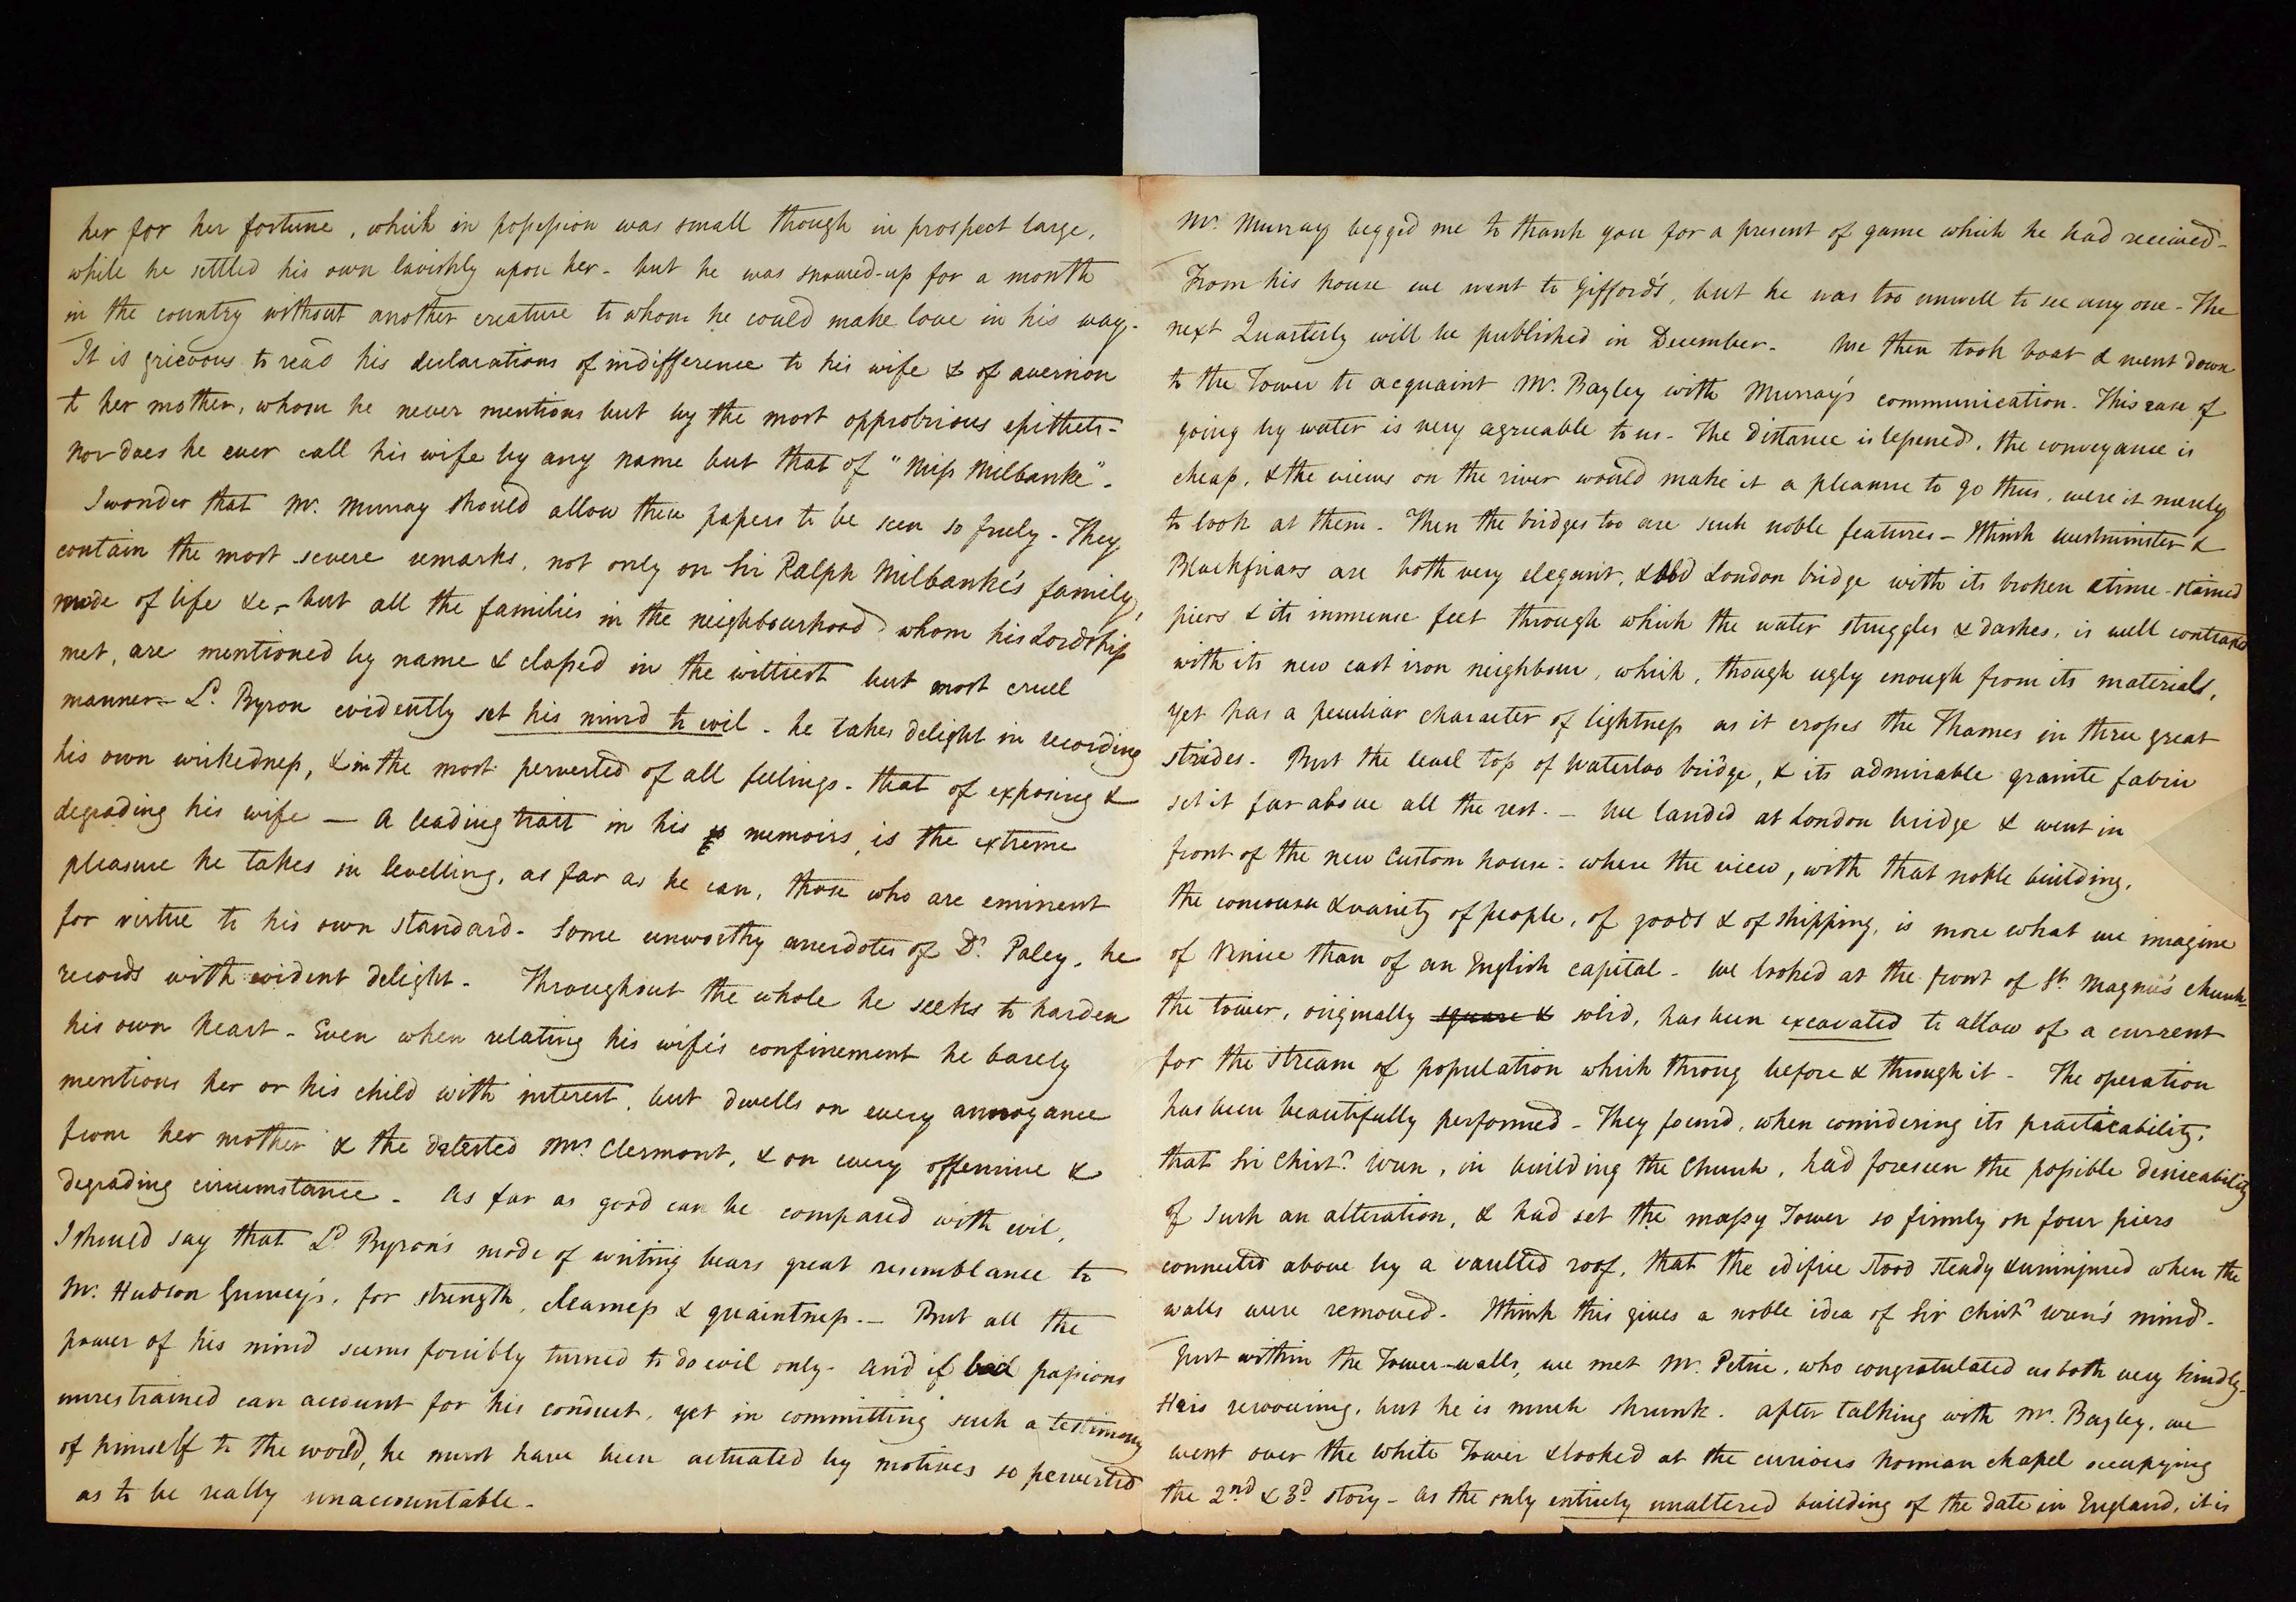 her for her fortune, which in possession was small though in prospect large,
while he settled his own lavishly upon her - but he was snowed-up for a month
in the country without another creature to whom he could make love in his way -
It is grievous to read his declarations of indifference to his wife & of aversion
to her mother, whom he never mentions but by the most opprobrious epithets -
Nor does he ever call his wife by any name but that of "Miss Milbanke".
I wonder that Mr. Murray should allow these papers to be seen so freely - They
contain the most severe remarks, not only on Sir Ralph Milbanke's family,
mode of life &c, - but all the families in the neighbourhood whom his Lordship
met, are mentioned by name & classed in the wittiest but most cruel
manner - Ld. Byron evidently set his mind to evil - he takes delight in recording
his own wickedness, & in the most perverted of all feelings - that of exposing &
degrading his wife — A leading trait in his memoirs, is the extreme
pleasure he takes in levelling, as far as he can, those who are eminent
for virtue to his own standard - Some unworthy anecdotes of Dr. Paley, he
records with evident delight - Throughout the whole he seeks to harden
his own heart - Even when relating his wife's confinement he barely
mentions her or his child with interest, but dwells on every annoyance
from her mother & the detested Mrs Clermont, & on every offensive &
degrading circumstance - As far as good can be compared with evil,
I should say that Ld Byron's mode of writing bears great resemblance to
Mr. Hudson Gurney's, for strength, clearness & quaintness. - But all the
power of his mind seems forcibly turned to do evil only - and if bad passions
unrestrained can account for his conduct, yet in committing such a testimony
of himself to the world, he must have been actuated by motives so perverted
as to be really unaccountable -
Mr. Murray begged me to thank you for a present of game which he had received -
From his house we went to Gifford's, but he was too unwell to see any one - The
next Quarterly will be published in December - We then took boat & went down
to the Tower to acquaint Mr. Bayley with Murray's communication. This ease of
going by water is very agreeable to us - The distance is lessened, the conveyance is
cheap, & the views on the river would make it a pleasure to go thus, were it merely
to look at them - Then the bridges too are such noble features - I think Westminster &
Blackfriars are both very elegant, & old London bridge with its broken & time-stained
piers & its immense feet through which the water struggles & dashes, is well contrasted
with its new cast iron neighbour, which, though ugly enough from its materials,
yet has a peculiar character of lightness as it crosses the Thames in three great
strides - But the level top of Waterloo bridge, & its admirable granite fabric
set it far above all the rest. - We landed at London bridge & went in
front of the new Custom house - where the view, with that noble building,
the concourse & variety of people, of goods & of shipping, is more what we imagine
of Venice than of an English capital - We looked at the front of St. Magnus's church -
the tower, originally square & solid, has been excavated to allow of a current
for the stream of population which throng before & through it - The operation
has been beautifully performed - They found, when considering its practicability,
that Sir Christr. Wren, in building the Church, had foreseen the possible desireability
of such an alteration, & had set the massy Tower so firmly on four piers
connected above by a vaulted roof, that the edifice stood steady & uninjured when the
walls were removed - I think this gives a noble idea of Sir Christr Wren's mind -
Just within the Tower-walls, we met Mr. Petrie, who congratulated us both very kindly -
He is recovering, but he is much shrunk. After talking with Mr. Bayley, we
went over the White Tower & looked at the curious Norman chapel occupying
the 2nd & 3d story - As the only entirely unaltered building of the date in England, it is